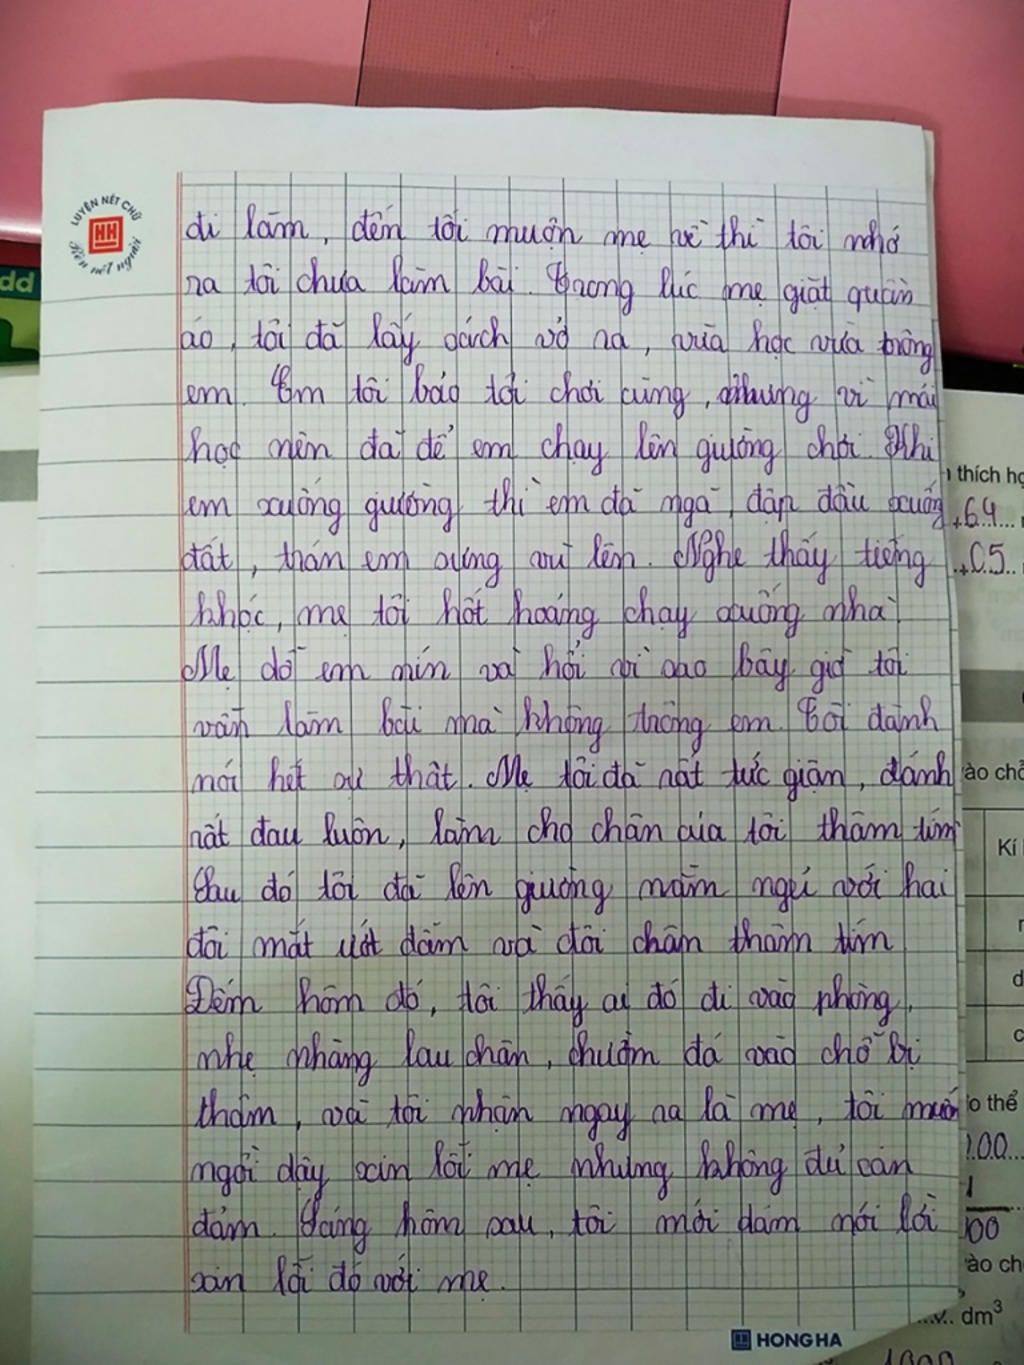 LUYỆN NÉT CHỮ
HH
Rèn nết người
dd
đi làm, đến tối muộn mẹ về thì tôi nhớ
ra tôi chưa làm bài. Trong lúc mẹ giặt quần
áo, tôi đã lấy sách vở ra, vừa học vừa trông
em. Em tôi bảo tôi chơi cùng, nhưng vì mải
học nên đã để em chạy lên giường chơi. Khi
em xuống giường thì em đã ngã, đập đầu xuống
đất, trán em sưng vù lên. Nghe thấy tiếng
khóc, mẹ tôi hốt hoảng chạy xuống nhà.
Mẹ dỗ em nín và hỏi vì sao bây giờ tôi
vẫn làm bài mà không trông em. Tôi đành
nói hết sự thật. Mẹ tôi đã rất tức giận, đánh
rất đau luôn, làm cho chân của tôi thâm tím
Sau đó tôi đã lên giường nằm ngủ với hai
đôi mắt ướt đẫm và đôi chân thâm tím
Đêm hôm đó, tôi thấy ai đó đi vào phòng,
nhẹ nhàng lau chân, chườm đá vào chỗ bị
thâm, và tôi nhận ngay ra là mẹ, tôi muốn
ngồi dậy xin lỗi mẹ nhưng không đủ can
đảm. Sáng hôm sau, tôi mới dám nói lời
xin lỗi đó với mẹ.
HONG HA
thích hợ
64
05
ào chỗ
Kí
d
c
o thể
100
1
00
ào ch
dm³
1000